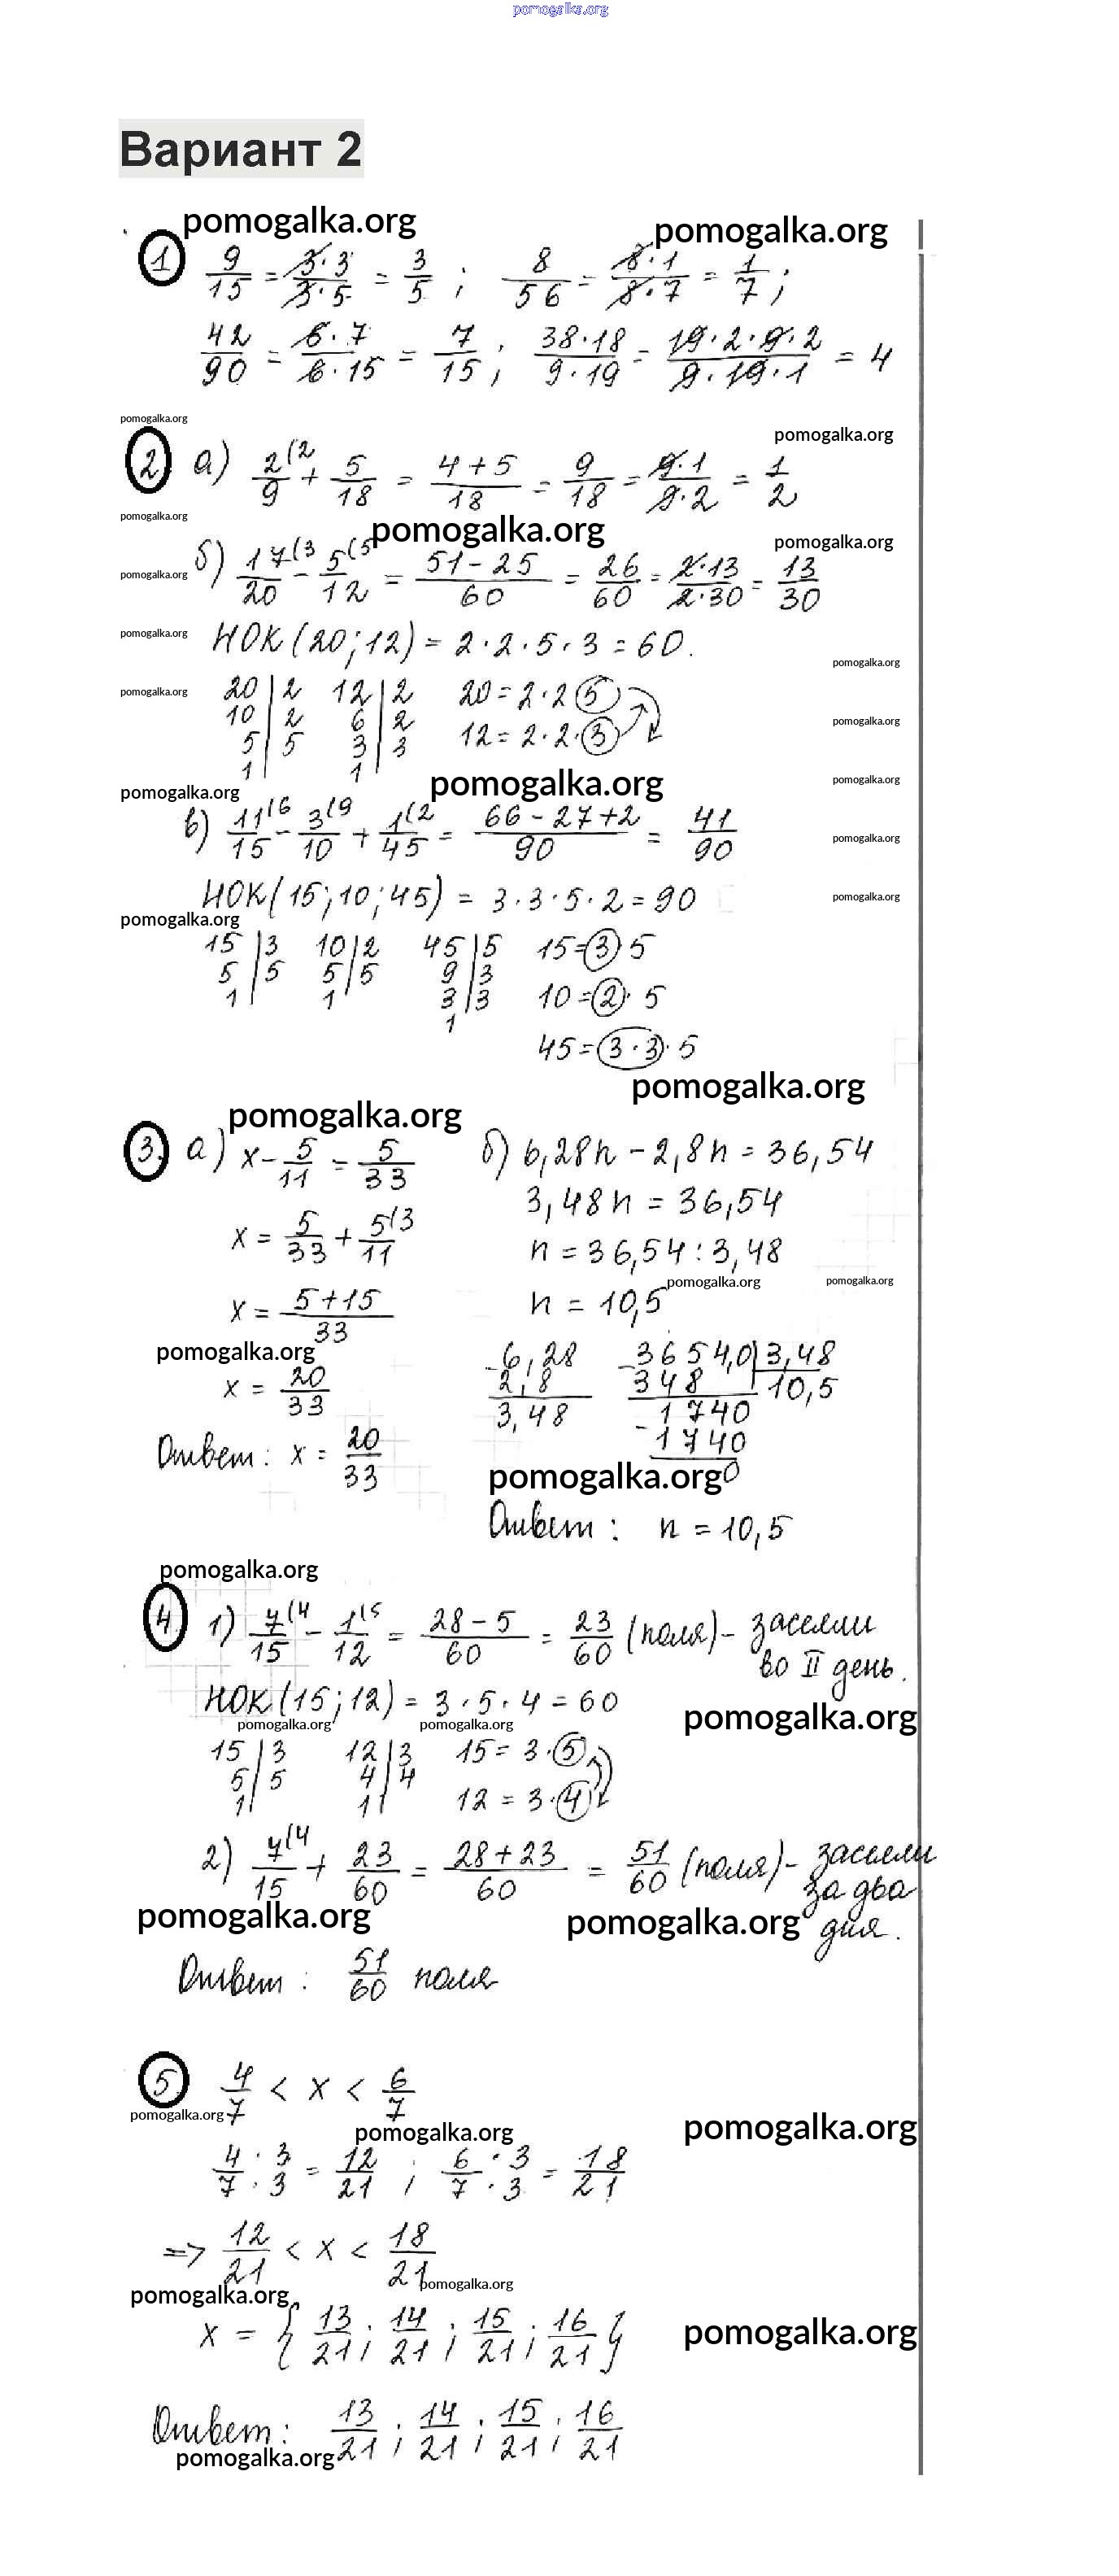 pomogalka.org
Вариант 2
pomogalka.org pomogalka.org
1 9/15 = 3·3/3·5 = 3/5 ; 8/56 = 8·1/8·7 = 1/7 ;
42/90 = 6·7/6·15 = 7/15 ; 38·18/9·19 = 19·2·9·2/9·19·1 = 4
pomogalka.org
pomogalka.org
2 а) 2/9 (2 + 5/18 = 4+5/18 = 9/18 = 9·1/9·2 = 1/2
pomogalka.org
pomogalka.org
pomogalka.org
б) 17/20 (3 - 5/12 (5 = 51-25/60 = 26/60 = 2·13/2·30 = 13/30
pomogalka.org
pomogalka.org
НОК(20;12) = 2·2·5·3 = 60.
pomogalka.org
pomogalka.org
20|2 12|2 20=2·2·5
10|2 6|2
pomogalka.org
5|5 3|3 12=2·2·3
1| 1|
pomogalka.org pomogalka.org
pomogalka.org
в) 11/15 (6 - 3/10 (9 + 1/45 (2 = 66-27+2/90 = 41/90
pomogalka.org
НОК(15;10;45) = 3·3·5·2=90
pomogalka.org
pomogalka.org
15|3 10|2 45|5 15=3·5
5|5 5|5 9|3
1| 1| 3|3 10=2·5
1
45=3·3·5
pomogalka.org
pomogalka.org
3. а) x - 5/11 = 5/33 б) 6,28n - 2,8n = 36,54
x = 5/33 + 5/11 (3 3,48n = 36,54
n = 36,54 : 3,48
pomogalka.org pomogalka.org
x = 5+15/33 n = 10,5
pomogalka.org
x = 20/33 -6,28 -3654,0|3,48
2,8 348 10,5
3,48 -1740
1740
Ответ: x = 20/33 0
pomogalka.org
Ответ: n = 10,5
pomogalka.org
4 1) 7/15 (4 - 1/12 (5 = 28-5/60 = 23/60 (поля) - засеяли
во II день.
НОК(15;12) = 3·5·4 = 60
pomogalka.org
pomogalka.org pomogalka.org
15|3 12|3 15=3·5
5|5 4|4
1| 1| 12=3·4
2) 7/15 (4 + 23/60 = 28+23/60 = 51/60 (поля) - засеяли
за два
pomogalka.org pomogalka.org дня.
Ответ: 51/60 поля
5 4/7 < x < 6/7
pomogalka.org
pomogalka.org
pomogalka.org
4·3/7·3 = 12/21 ; 6·3/7·3 = 18/21
=> 12/21 < x < 18/21
pomogalka.org
pomogalka.org
x = { 13/21 ; 14/21 ; 15/21 ; 16/21 }
pomogalka.org
Ответ: 13/21 ; 14/21 ; 15/21 ; 16/21
pomogalka.org